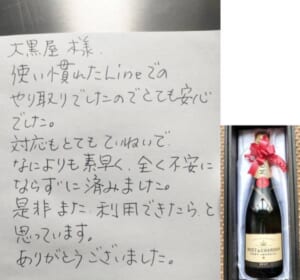 大黒屋 様.
使い慣れたLineでの
やり取りでしたのでとても安心
でした。
対応もとてもていねいで、
なによりも素早く、全く不安に
ならずに済みました。
是非また利用できたら、と
思っています。
ありがとうございました。
MOËT & CHANDON